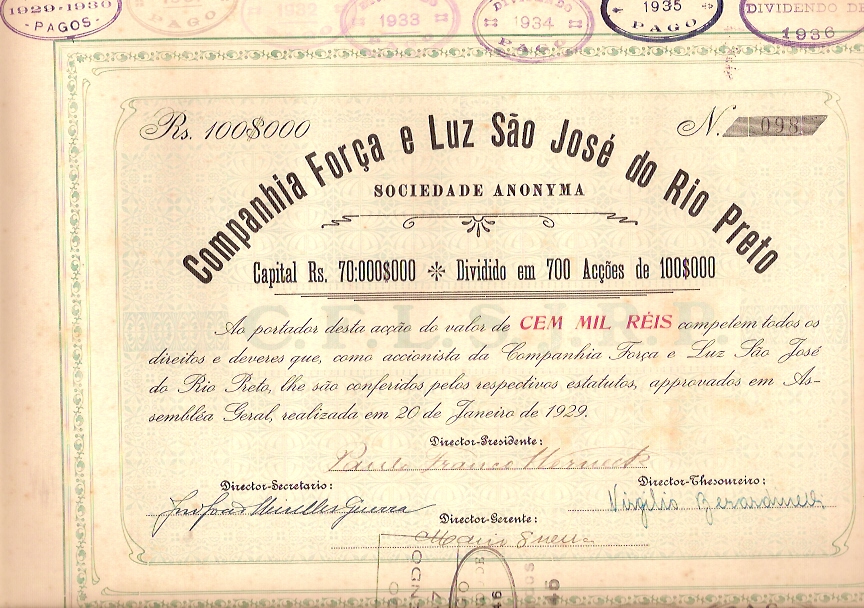 1929-1930
PAGOS-
1933
1934
1935
PAGO
DIVIDENDO DE
1936
Rs. 100$000
N. 098
Companhia Força e Luz São José do Rio Preto
SOCIEDADE ANONYMA
Capital Rs. 70:000$000 Dividido em 700 Acções de 100$000
Ao portador desta acção do valor de CEM MIL RÉIS competem todos os
direitos e deveres que, como accionista da Companhia Força e Luz São José
do Rio Preto, lhe são conferidos pelos respectivos estatutos, approvados em As-
sembléa Geral, realizada em 20 de Janeiro de 1929.
Director-Presidente:
Director-Secretario:
Director-Thesoureiro:
Virgilio
Director-Gerente:
Mario Guerra